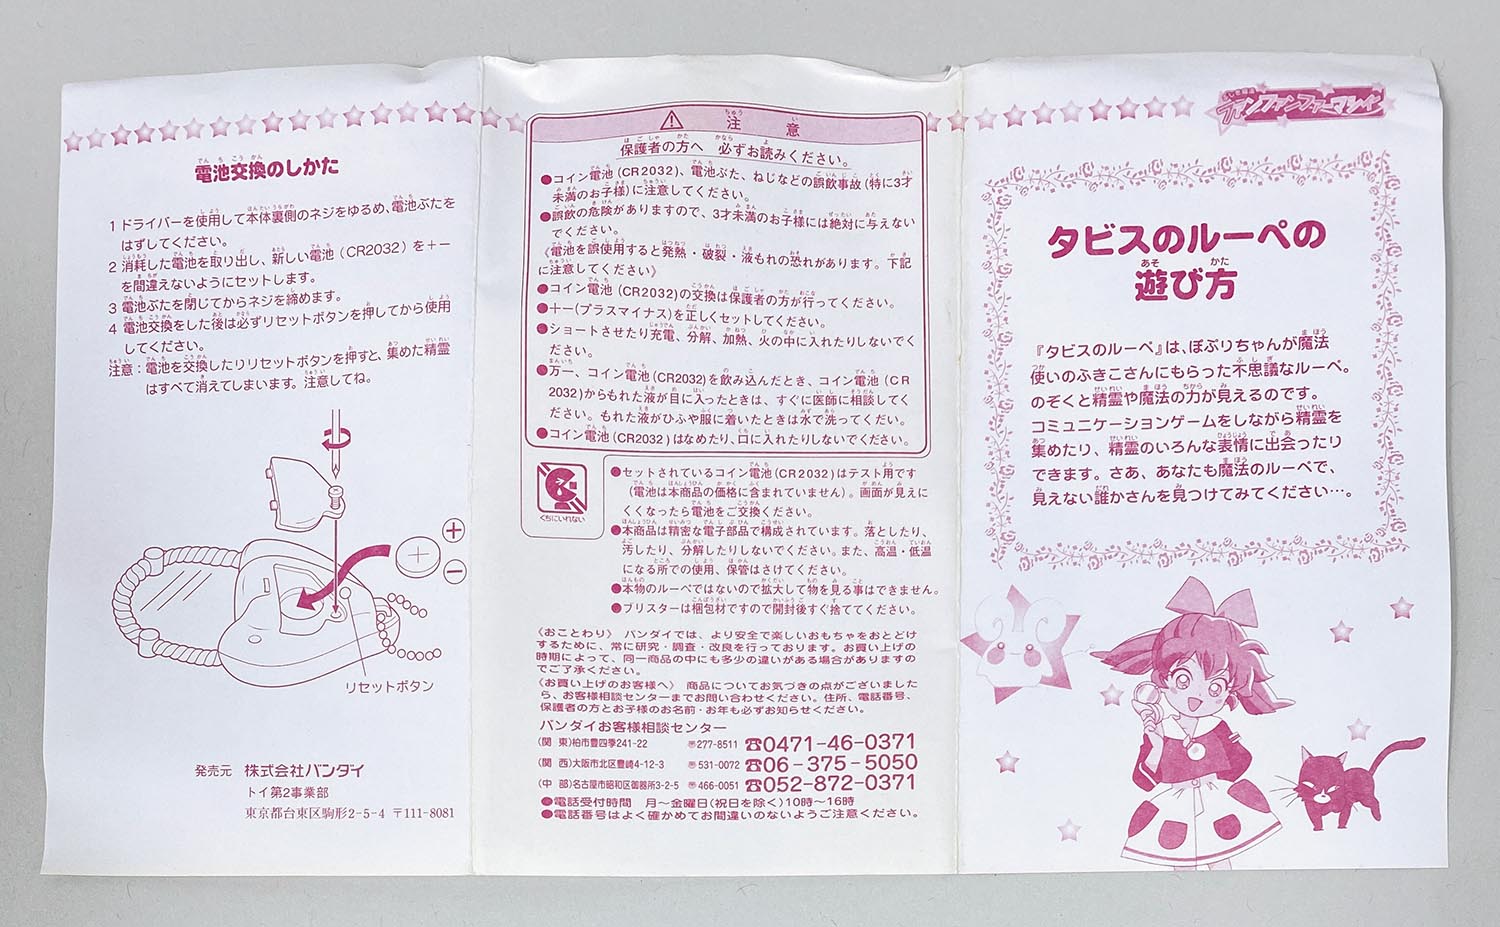 電池交換のしかた
1 ドライバーを使用して本体裏側のネジをゆるめ、電池ぶたを
はずしてください。
2 消耗した電池を取り出し、新しい電池(CR2032)を+-
を間違えないようにセットします。
3 電池ぶたを閉じてからネジを締めます。
4 電池交換をした後は必ずリセットボタンを押してから使用
してください。
注意:電池を交換したりリセットボタンを押すと、集めた精霊
はすべて消えてしまいます。注意してね。
+
-
リセットボタン
発売元 株式会社バンダイ
トイ第2事業部
東京都台東区駒形2-5-4 〒111-8081
注意
保護者の方へ 必ずお読みください。
●コイン電池(CR2032)、電池ぶた、ねじなどの誤飲事故(特に3才
未満のお子様)に注意してください。
●誤飲の危険がありますので、3才未満のお子様には絶対に与えない
でください。
《電池を誤使用すると発熱・破裂・液もれの恐れがあります。下記
に注意してください》
●コイン電池(CR2032)の交換は保護者の方が行ってください。
●+-(プラスマイナス)を正しくセットしてください。
●ショートさせたり充電、分解、加熱、火の中に入れたりしないでく
ださい。
●万一、コイン電池(CR2032)を飲み込んだとき、コイン電池(CR
2032)からもれた液が目に入ったときは、すぐに医師に相談してく
ださい。もれた液がひふや服に着いたときは水で洗ってくだい。
●コイン電池(CR2032)はなめたり、口に入れたりしないでください。
くちにいれない
●セットされているコイン電池(CR2032)はテスト用です
(電池は本商品の価格に含まれていません)。画面が見えに
くくなったら電池をご交換ください。
●本商品は精密な電子部品で構成されています。落としたり、
汚したり、分解したりしないでください。また、高温・低温
になる所での使用、保管はさけてください。
●本物のルーペではないので拡大して物を見る事はできません。
●ブリスターは梱包材ですので開封後すぐ捨ててください。
《おことわり》 バンダイでは、より安全で楽しいおもちゃをおとどけ
するために、常に研究・調査・改良を行っております。お買い上げの
時期によって、同一商品の中にも多少の違いがある場合がありますの
でご了承ください。
《お買い上げのお客様へ》 商品についてお気づきの点がございました
ら、お客様相談センターまでお問い合わせください。住所、電話番号、
保護者の方とお子様のお名前・お年も必ずお知らせください。
バンダイお客様相談センター
(関 東)柏市豊四季241-22 〒277-8511 ☎0471-46-0371
(関 西)大阪市北区豊崎4-12-3 〒531-0072 ☎06-375-5050
(中 部)名古屋市昭和区御器所3-2-5 〒466-0051 ☎052-872-0371
●電話受付時間 月~金曜日(祝日を除く)10時~16時
●電話番号はよく確かめてお間違いのないようご注意ください。
ファンファンファーマシィー
タビスのルーペの
遊び方
『タビスのルーペ』は、ぽぷりちゃんが魔法
使いのふきこさんにもらった不思議なルーペ。
のぞくと精霊や魔法の力が見えるのです。
コミュニケーションゲームをしながら精霊を
集めたり、精霊のいろんな表情に出会ったり
できます。さあ、あなたも魔法のルーペで、
見えない誰かさんを見つけてみてください…。